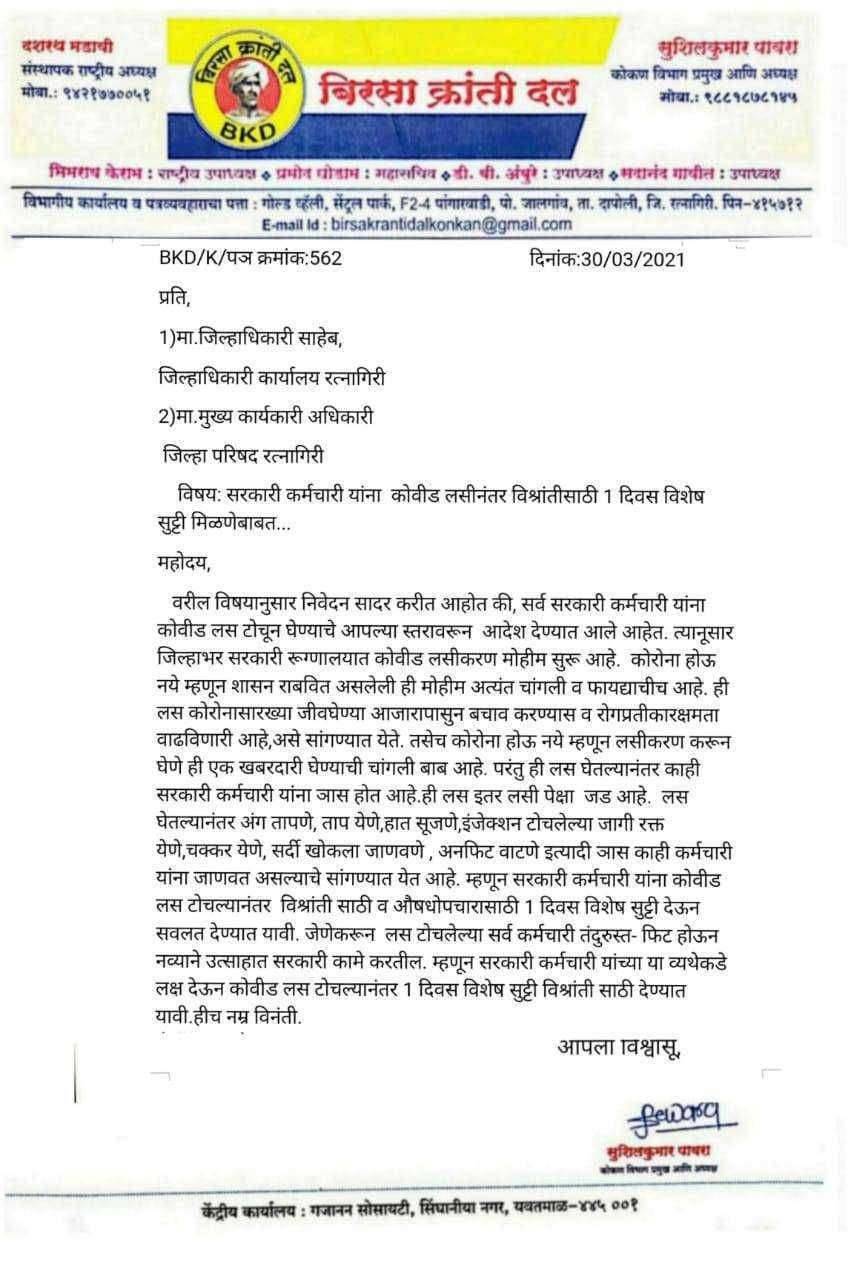 दशरथ मडावी
संस्थापक राष्ट्रीय अध्यक्ष
मोबा.: ९४२१७७००५१
बिरसा क्रांती दल
BKD
बिरसा क्रांती दल
सुशिलकुमार पावरा
कोकण विभाग प्रमुख आणि अध्यक्ष
मोबा.: ९८८१८७८१४५
भिमराव केराम : राष्ट्रीय उपाध्यक्ष ❖ प्रमोद घोडाम : महासचिव ❖ डी. बी. अंबुरे : उपाध्यक्ष ❖ सदानंद गावीत : उपाध्यक्ष
विभागीय कार्यालय व पत्रव्यवहाराचा पत्ता : गोल्ड व्हॅली, सेंट्रल पार्क, F2-4 पांगारवाडी, पो. जालगांव, ता. दापोली, जि. रत्नागिरी. पिन-४१५७१२
E-mail Id : birsakrantidalkonkan@gmail.com
BKD/K/पञ क्रमांक:562
दिनांक:30/03/2021
प्रति,
1)मा.जिल्हाधिकारी साहेब,
जिल्हाधिकारी कार्यालय रत्नागिरी
2)मा.मुख्य कार्यकारी अधिकारी
जिल्हा परिषद रत्नागिरी
विषय: सरकारी कर्मचारी यांना कोवीड लसीनंतर विश्रांतीसाठी 1 दिवस विशेष
सुट्टी मिळणेबाबत...
महोदय,
वरील विषयानुसार निवेदन सादर करीत आहोत की, सर्व सरकारी कर्मचारी यांना
कोवीड लस टोचून घेण्याचे आपल्या स्तरावरून आदेश देण्यात आले आहेत. त्यानुसार
जिल्हाभर सरकारी रूग्णालयात कोवीड लसीकरण मोहीम सुरू आहे. कोरोना होऊ
नये म्हणून शासन राबवित असलेली ही मोहीम अत्यंत चांगली व फायद्याचीच आहे. ही
लस कोरोनासारख्या जीवघेण्या आजारापासुन बचाव करण्यास व रोगप्रतीकारक्षमता
वाढविणारी आहे,असे सांगण्यात येते. तसेच कोरोना होऊ नये म्हणून लसीकरण करून
घेणे ही एक खबरदारी घेण्याची चांगली बाब आहे. परंतु ही लस घेतल्यानंतर काही
सरकारी कर्मचारी यांना ञास होत आहे.ही लस इतर लसी पेक्षा जड आहे. लस
घेतल्यानंतर अंग तापणे, ताप येणे,हात सूजणे,इंजेक्शन टोचलेल्या जागी रक्त
येणे,चक्कर येणे, सर्दी खोकला जाणवणे , अनफिट वाटणे इत्यादी ञास काही कर्मचारी
यांना जाणवत असल्याचे सांगण्यात येत आहे. म्हणून सरकारी कर्मचारी यांना कोवीड
लस टोचल्यानंतर विश्रांती साठी व औषधोपचारासाठी 1 दिवस विशेष सुट्टी देऊन
सवलत देण्यात यावी. जेणेकरून लस टोचलेल्या सर्व कर्मचारी तंदुरुस्त- फिट होऊन
नव्याने उत्साहात सरकारी कामे करतील. म्हणून सरकारी कर्मचारी यांच्या या व्यथेकडे
लक्ष देऊन कोवीड लस टोचल्यानंतर 1 दिवस विशेष सुट्टी विश्रांती साठी देण्यात
यावी.हीच नम्र विनंती.
आपला विश्वासू,
सुशिलकुमार पावरा
कोकण विभाग प्रमुख आणि अध्यक्ष
केंद्रीय कार्यालय : गजानन सोसायटी, सिंघानीया नगर, यवतमाळ-४४५ ००१